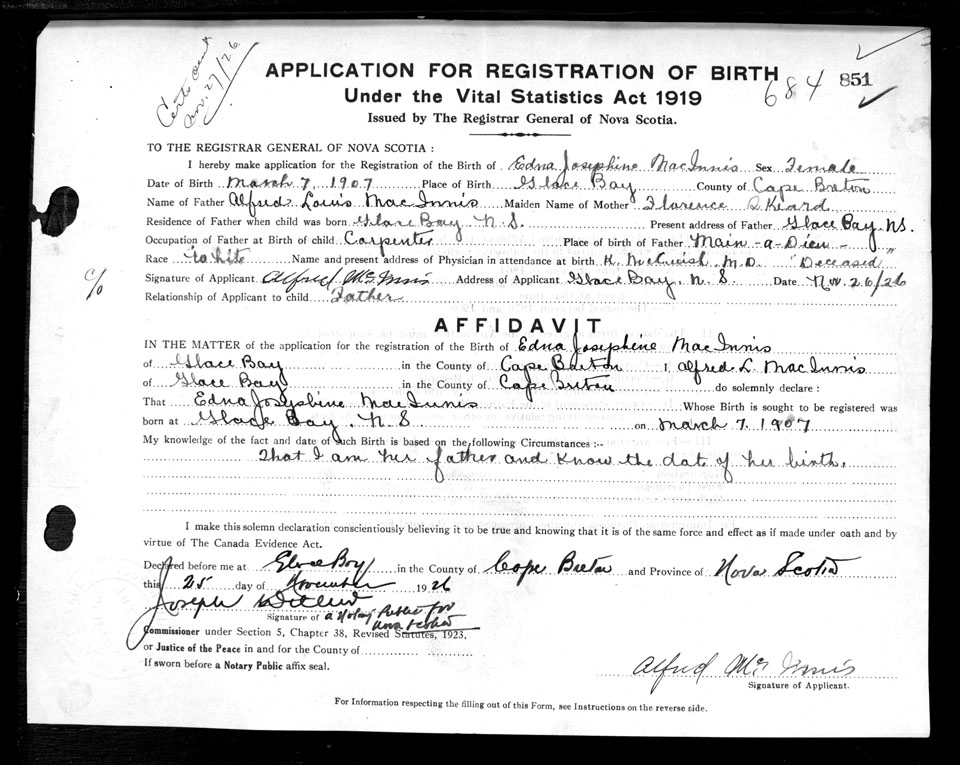 Certs sent
Nov. 27/26
APPLICATION FOR REGISTRATION OF BIRTH
684 851
Under the Vital Statistics Act 1919
Issued by The Registrar General of Nova Scotia.
TO THE REGISTRAR GENERAL OF NOVA SCOTIA :
I hereby make application for the Registration of the Birth of Edna Josephine MacInnis Sex Female
Date of Birth March 7, 1907 Place of Birth Glace Bay County of Cape Breton
Name of Father Alfred Louis MacInnis Maiden Name of Mother Florence Skeard
Residence of Father when child was born Glace Bay N.S. Present address of Father Glace Bay, NS.
Occupation of Father at Birth of child Carpenter Place of birth of Father Main-a-Dieu-
Race White Name and present address of Physician in attendance at birth M.D. "Deceased"
c/o
Signature of Applicant Alfred McInnis Address of Applicant Glace Bay, N.S. Date Nov. 26/26
Relationship of Applicant to child Father
AFFIDAVIT
IN THE MATTER of the application for the registration of the Birth of Edna Josephine MacInnis
of Glace Bay in the County of Cape Breton I, Alfred L. MacInnis
of Glace Bay in the County of Cape Breton do solemnly declare :
That Edna Josephine MacInnis Whose Birth is sought to be registered was
born at Glace Bay, N.S on March 7, 1907
My knowledge of the fact and date of such Birth is based on the following Circumstances :--
That I am her father and know the dat of her birth.
I make this solemn declaration conscientiously believing it to be true and knowing that it is of the same force and effect as if made under oath and by
virtue of The Canada Evidence Act.
Declared before me at Glace Bay in the County of Cape Breton and Province of Nova Scotia
this 25 day of November 1926
Joseph
Signature of a Notary Public for
Nova Scotia
Commissioner under Section 5, Chapter 38, Revised Statutes, 1923.
or Justice of the Peace in and for the County of
If sworn before a Notary Public affix seal.
Alfred McInnis
Signature of Applicant.
For Information respecting the filling out of this Form, see Instructions on the reverse side.